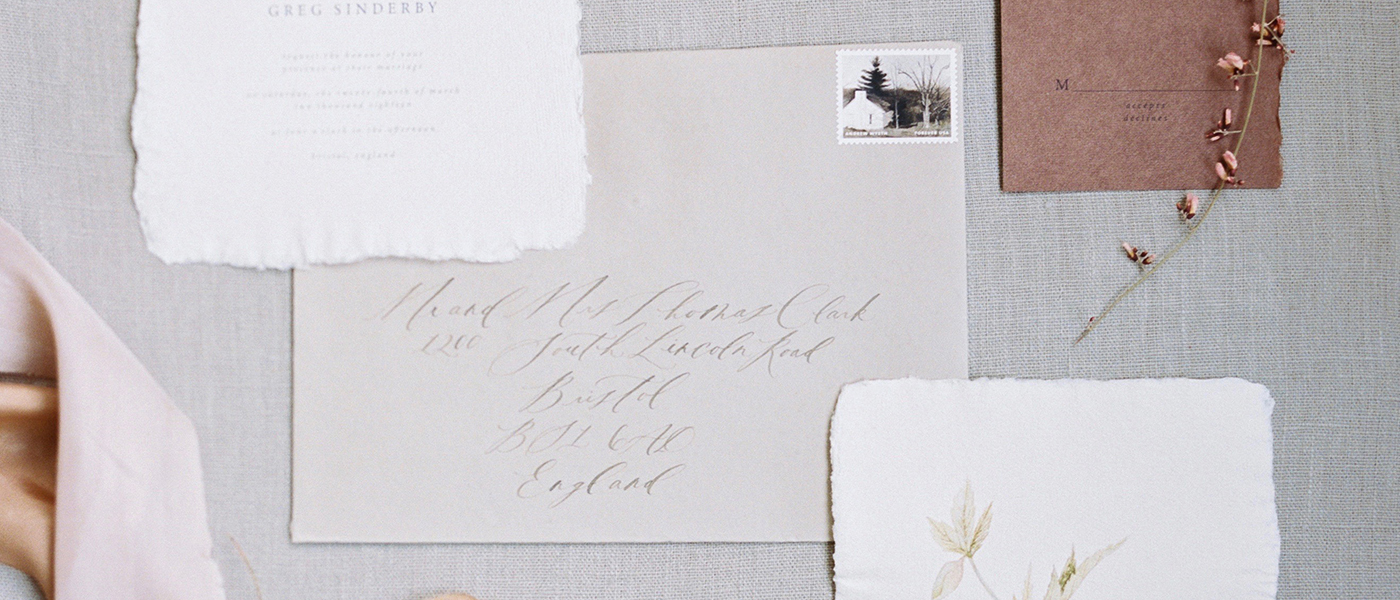 GREG SINDERBY
request the honour of your
presence at their marriage
on saturday, the twenty fourth of march
two thousand eighteen
at four o'clock in the afternoon
bristol, england
ANDREW WYETH FOREVER USA
M
accepts
declines
Mr and Mrs Thomas Clark
1200 South Lincoln Road
Bristol
England